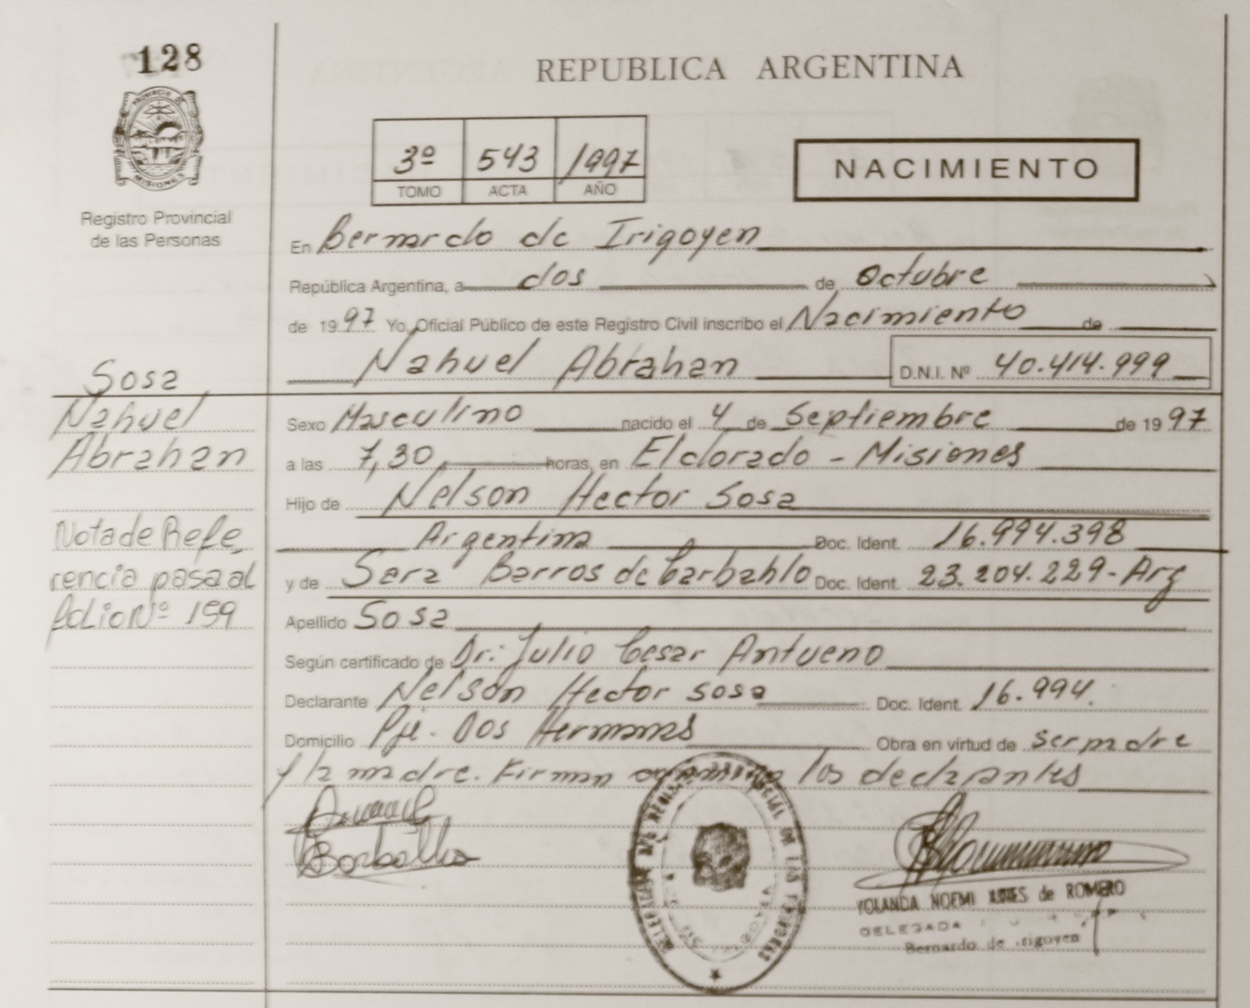 128
REPUBLICA ARGENTINA
3º 543 1997
TOMO ACTA AÑO
NACIMIENTO
PROVINCIA DE MISIONES
Registro Provincial
de las Personas
En Bernardo de Irigoyen
República Argentina, a dos de Octubre
de 1997 Yo, Oficial Público de este Registro Civil inscribo el Nacimiento de
Nahuel Abrahan D.N.I. Nº 40.414.999
Sosa
Nahuel
Abrahan
Sexo Masculino nacido el 4 de Septiembre de 1997
a las 7,30 horas, en Eldorado - Misiones
Hijo de Nelson Hector Sosa
Argentina Doc. Ident. 16.994.398
y de Sara Barros de Carbahlo Doc. Ident. 23.204.229-Arg
Nota de Refe
rencia pasa al
folio Nº 159
Apellido Sosa
Según certificado de Dr. Julio Cesar Antueno
Declarante Nelson Hector Sosa Doc. Ident. 16.994.
Domicilio Pje. Dos Hermanas Obra en virtud de ser padre
y la madre. Firman los declarantes
YOLANDA NOEMI de ROMERO
DELEGADA
Bernardo de Irigoyen